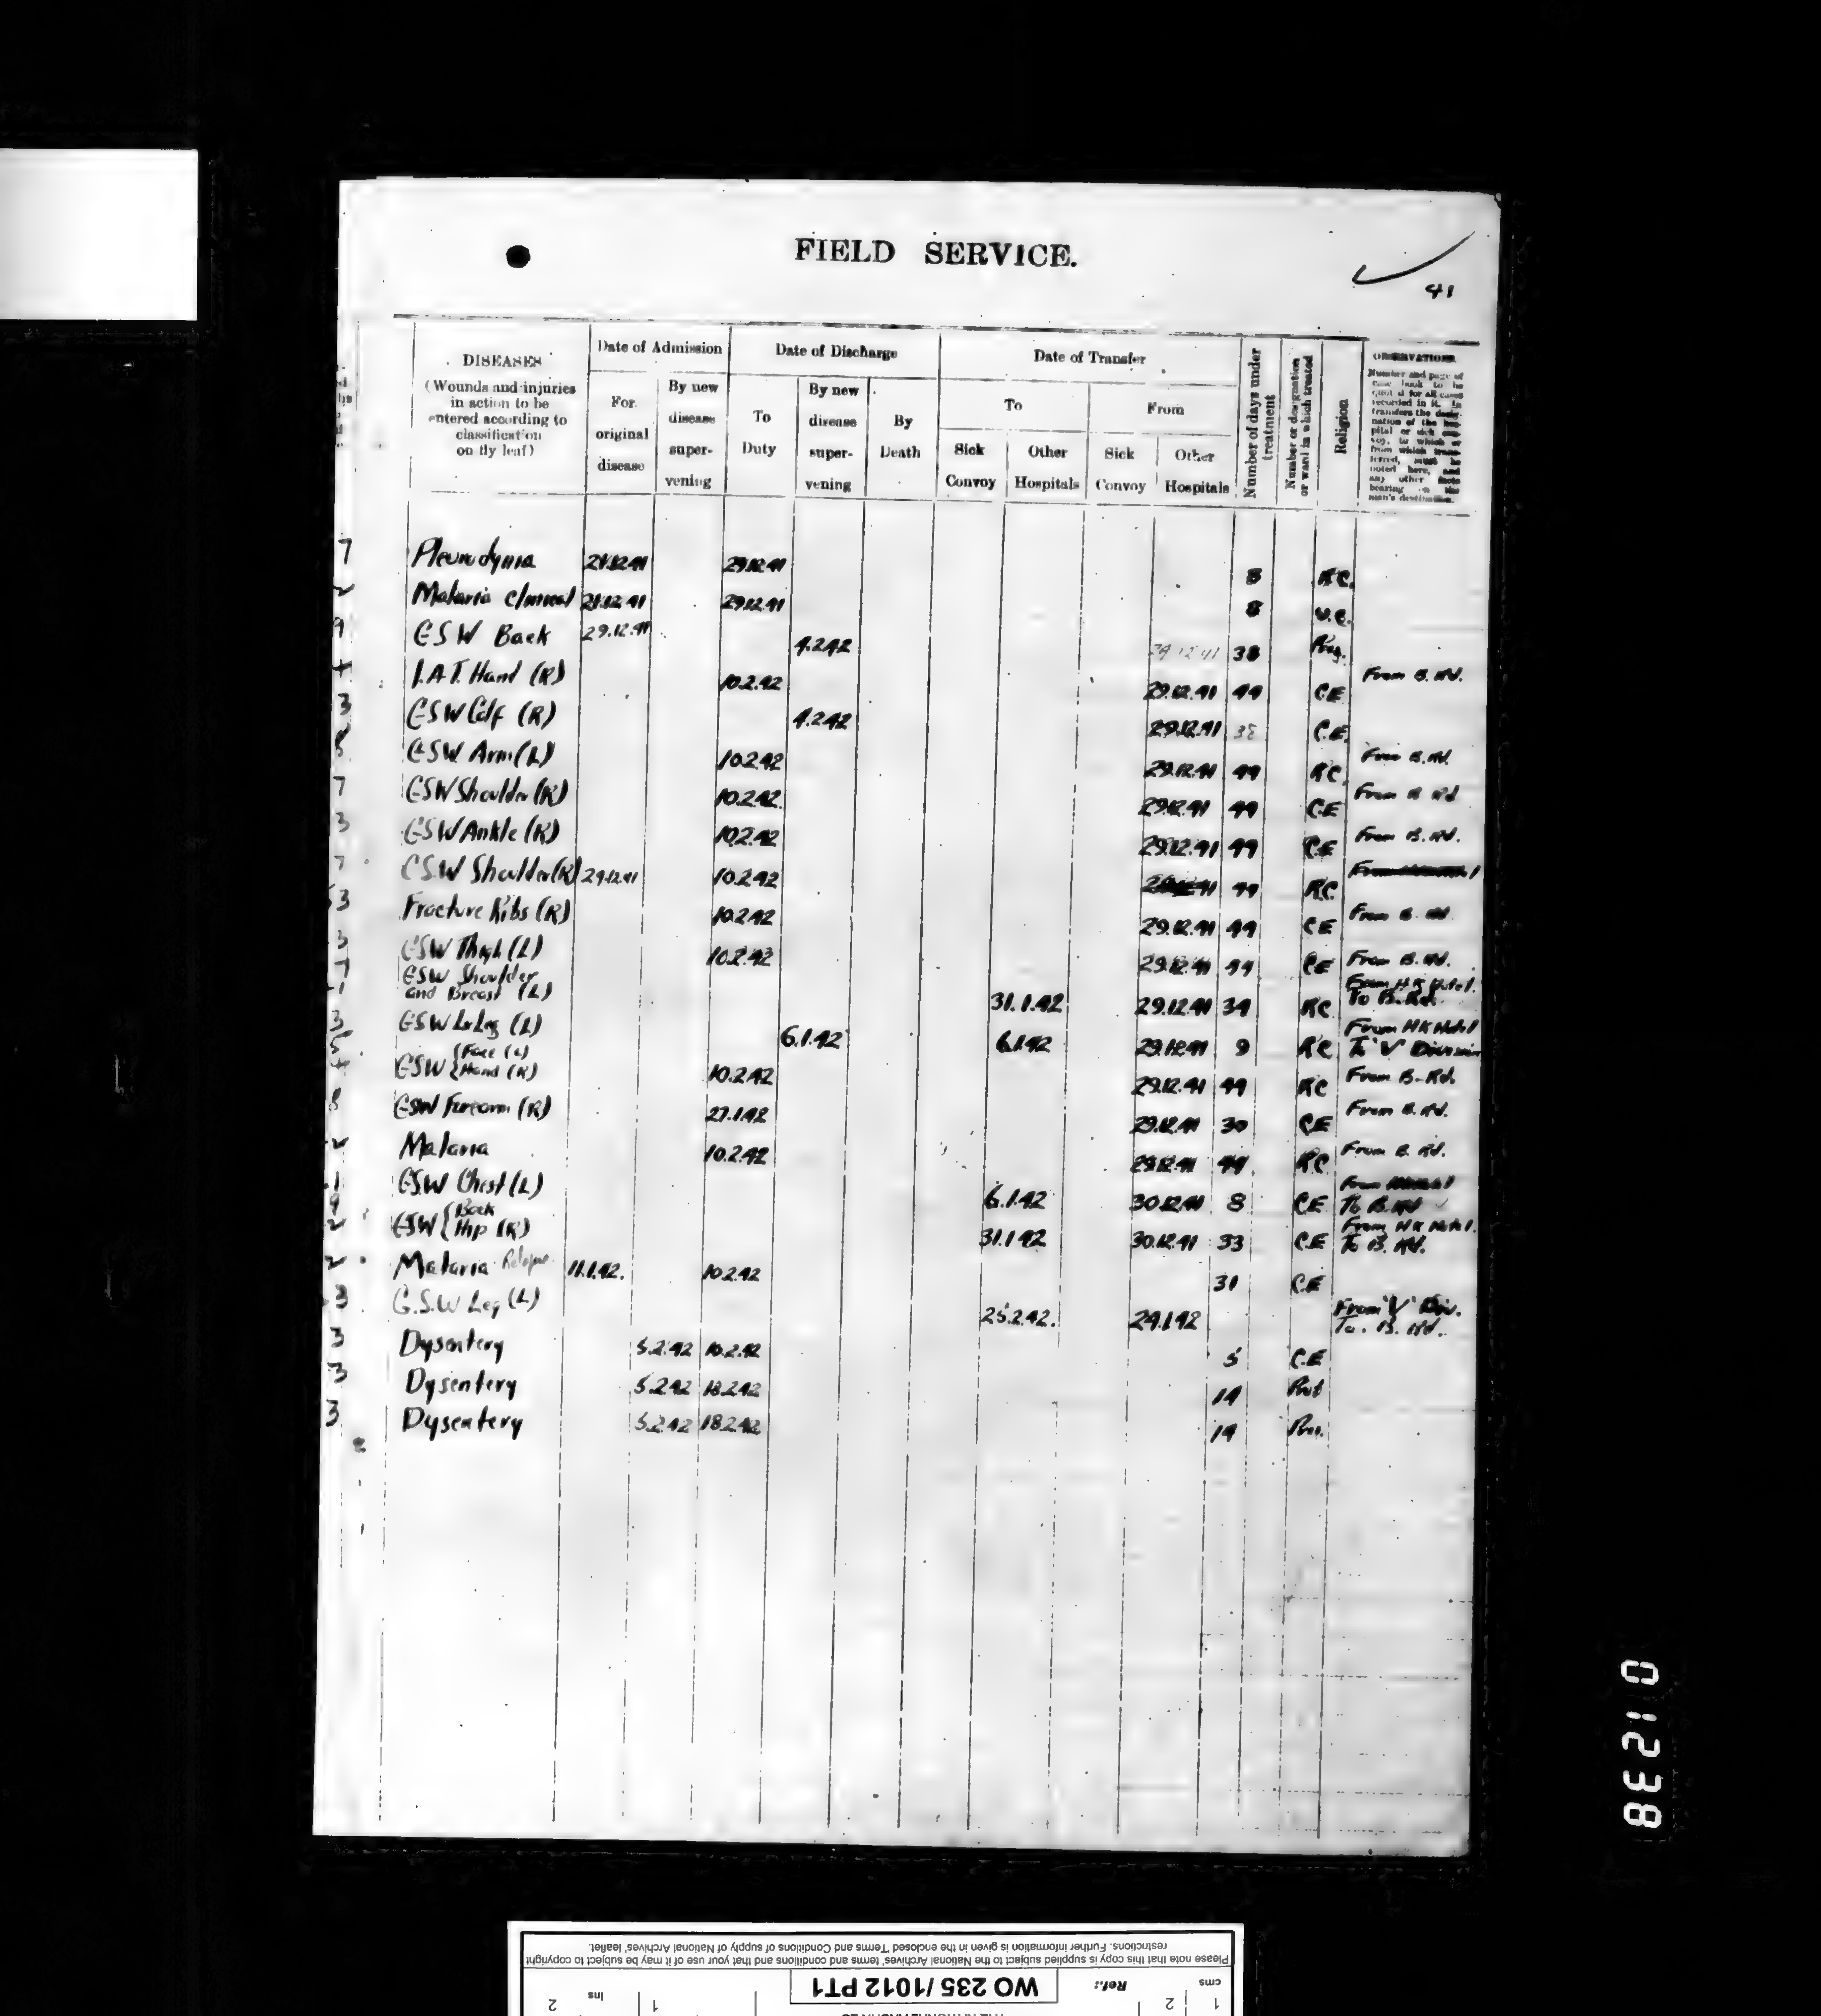 FIELD SERVICE.
41
DISEASES
(Wounds and injuries
in action to be
entered according to
classification
on fly leaf)
Date of Admission
For
original
disease
By new
disease
super-
vening
Date of Discharge
To
Duty
By new
disease
super-
vening
By
Death
Date of Transfer
To
Sick
Convoy
Other
Hospitals
From
Sick
Convoy
Other
Hospitals
Number of days under
treatment
Number or designation
or ward in which treated
Religion
OBSERVATIONS
Number and page of
case book to be
quoted for all cases
recorded in it. In
transfers the desig-
nation of the hos-
pital or sick con-
voy, to which or
from which trans-
ferred, must be
noted here, and
any other facts
bearing on the
man's destination.
7 Pleurodynia 21.12.41 29.12.41 8 R.C.
2 Malaria clinical 21.12.41 29.12.41 8
9 GSW Back 29.12.41 4.2.42 29.12.41 38
7 I.A.T. Hand (R) 10.2.42 29.12.41 44 C.E From B. Rd.
3 GSW Calf (R) 4.2.42 29.12.41 38 C.E.
8 GSW Arm (L) 10.2.42 29.12.41 44 RC From B. Rd.
7 GSW Shoulder (R) 10.2.42 29.12.41 44 C.E From B Rd
3 GSW Ankle (R) 10.2.42 29.12.41 44 C.E From B. Rd.
7 G.S.W Shoulder (R) 29.12.41 10.2.42 44 R.C.
3 Fracture Ribs (R) 10.2.42 29.12.41 44 CE From B. Rd.
3 GSW Thigh (L) 10.2.42 29.12.41 44 CE From B. Rd.
7 GSW Shoulder
and Breast (L) 31.1.42 29.12.41 34 RC From H K Hotel. To B. Rd.
3 GSW Lr Leg (L) 6.1.42 6.1.42 29.12.41 9 RC From HK Hotel To "V" Division
GSW {Face (L)
Hand (R) 10.2.42 29.12.41 44 RC From B. Rd.
8 GSW Forearm (R) 27.1.42 29.12.41 30 CE From B. Rd.
2 Malaria 10.2.42 29.12.41 44 RC From B. Rd.
1 GSW Chest (L) 6.1.42 30.12.41 8 C.E From To B. Rd
9 GSW {Back
2 Hip (R) 31.1.42 30.12.41 33 C.E From H K Hotel. To B. Rd.
2 Malaria Relapse 11.1.42. 10.2.42 31 C.E
3 G.S.W Leg (L) 25.2.42. 24.1.42 From "V" Div. To. B. Rd.
3 Dysentery 5.2.42 10.2.42 5 C.E
3 Dysentery 5.2.42 18.2.42 14
3 Dysentery 5.2.42 18.2.42 14
01238
Please note that this copy is supplied subject to the National Archives' terms and conditions and that your use of it may be subject to copyright
restrictions. Further information is given in the enclosed 'Terms and Conditions of supply of National Archives' leaflet.
cms 1 2 Ref.: WO 235/1012 PT1 1 Ins 2